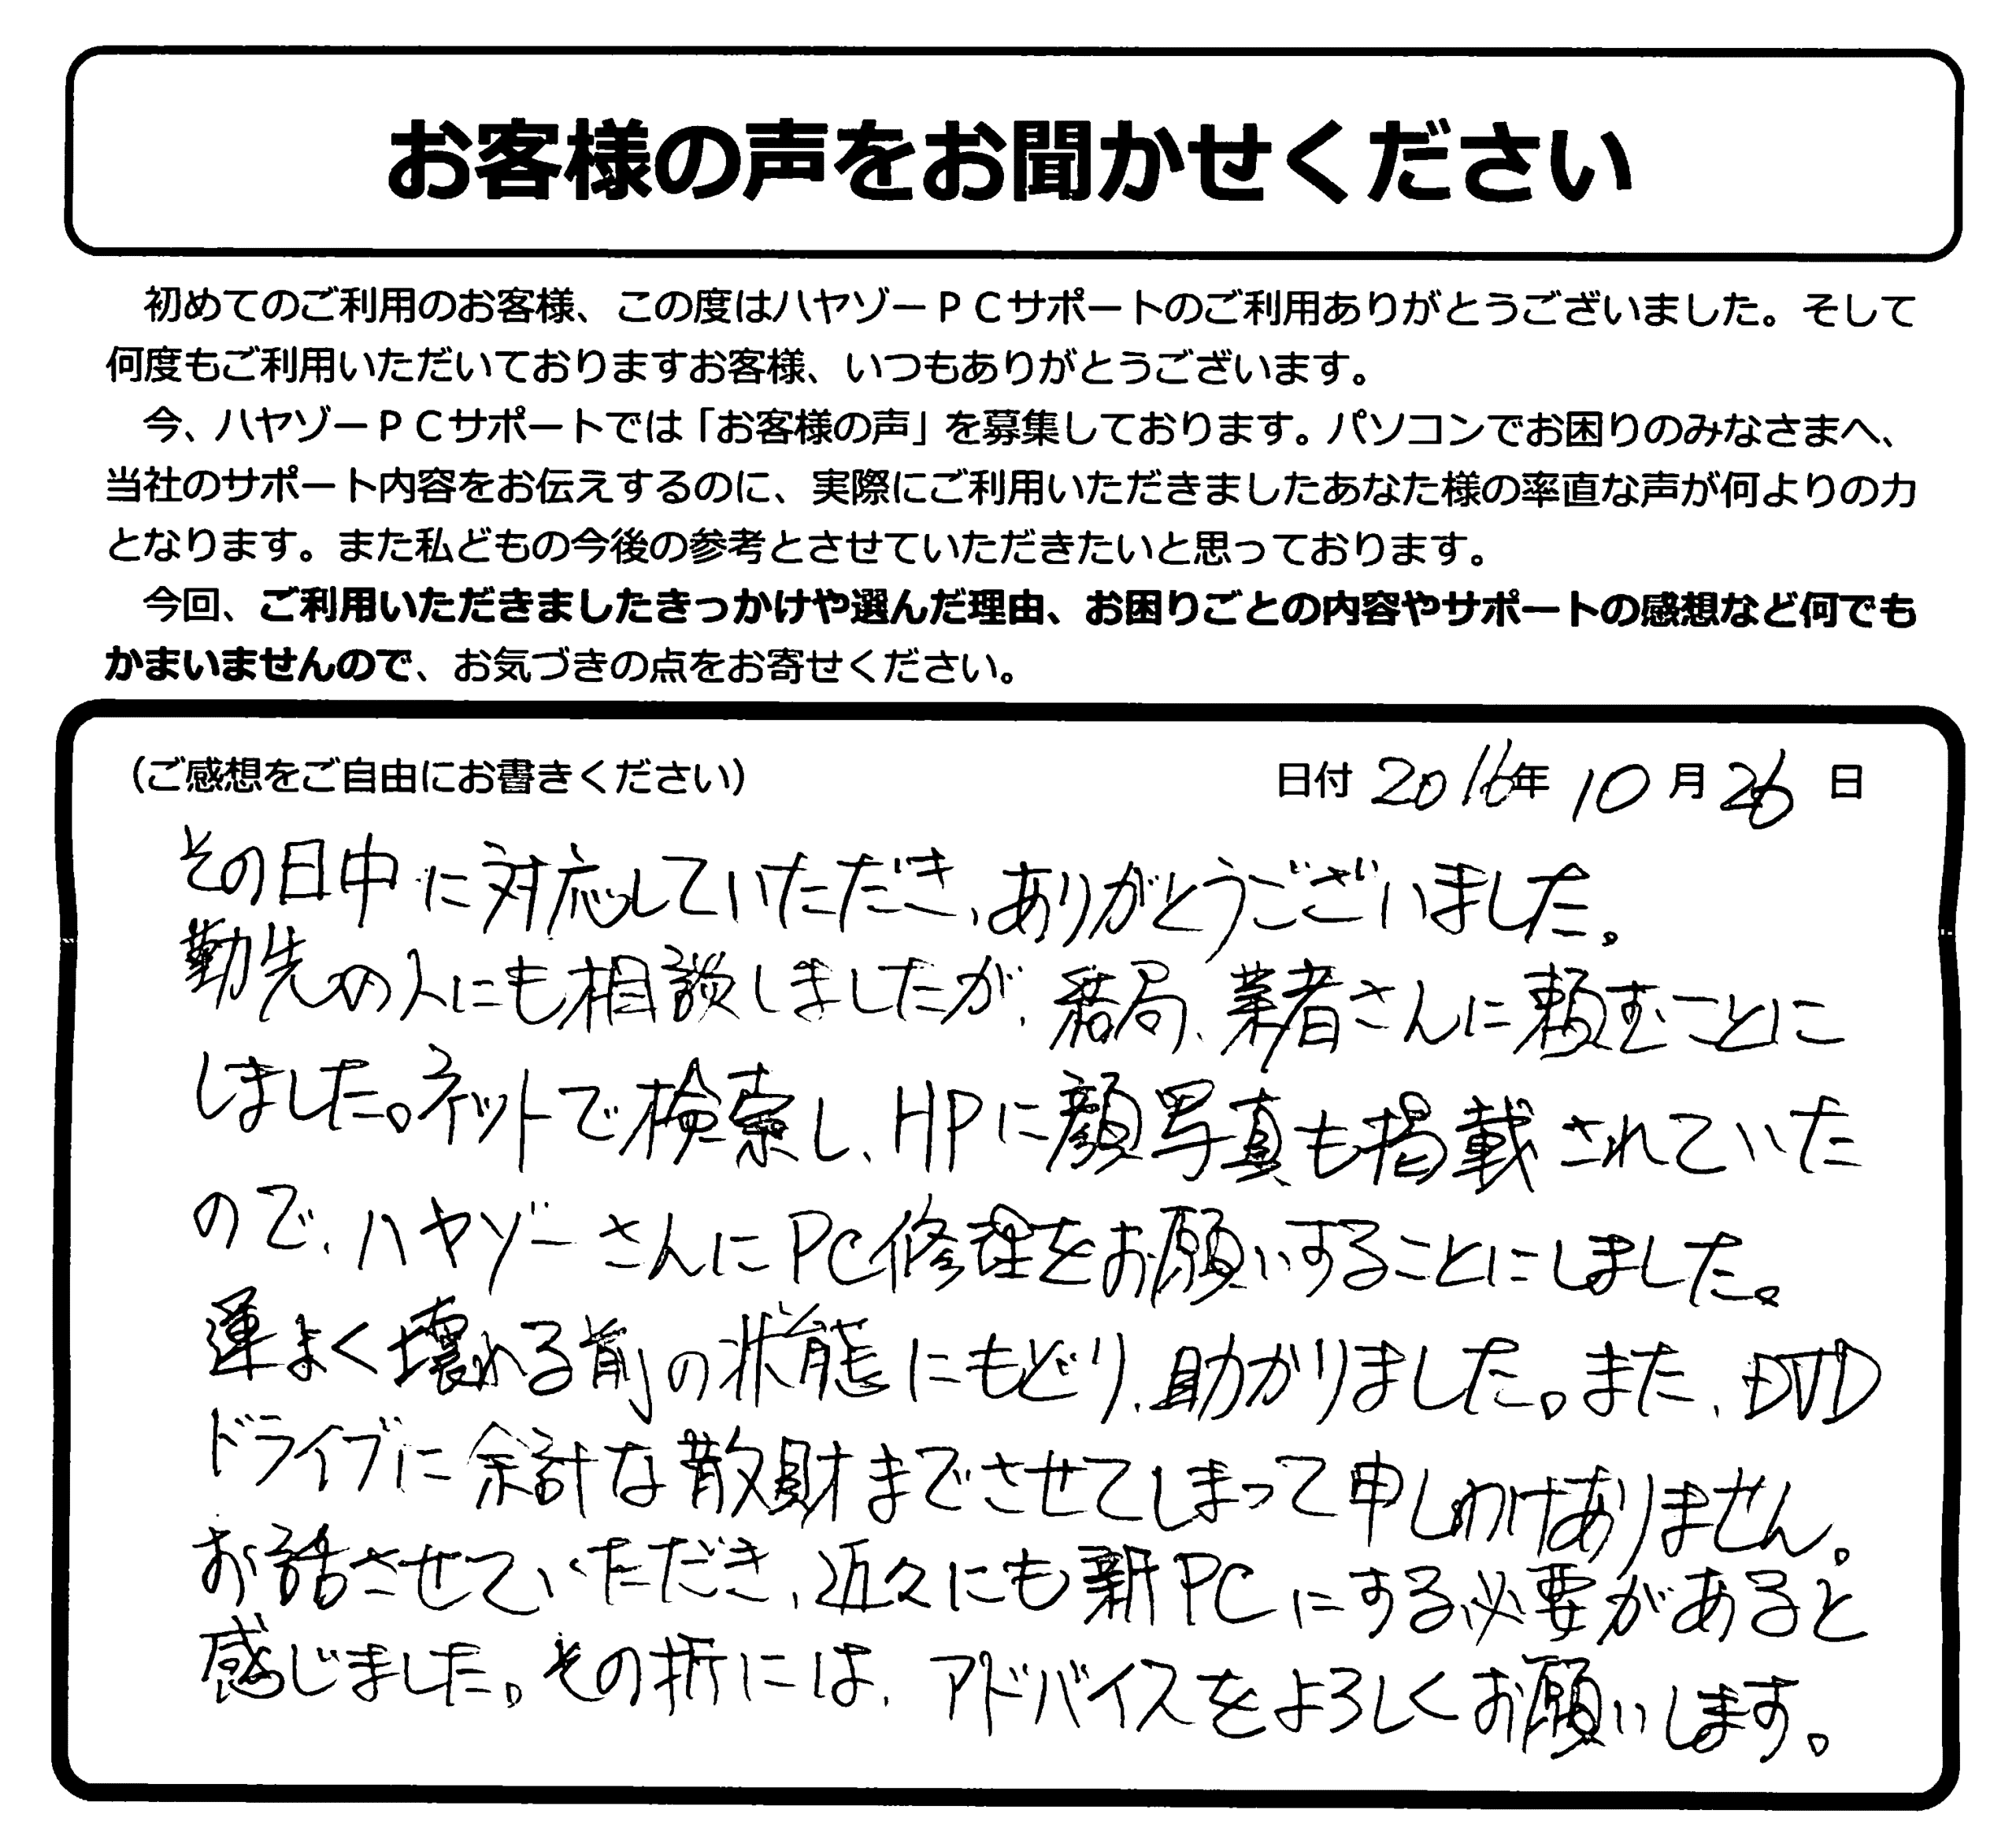 お客様の声をお聞かせください
初めてのご利用のお客様、この度はハヤゾーＰＣサポートのご利用ありがとうございました。そして
何度もご利用いただいておりますお客様、いつもありがとうございます。
今、ハヤゾーＰＣサポートでは「お客様の声」を募集しております。パソコンでお困りのみなさまへ、
当社のサポート内容をお伝えするのに、実際にご利用いただきましたあなた様の率直な声が何よりの力
となります。また私どもの今後の参考とさせていただきたいと思っております。
今回、ご利用いただきましたきっかけや選んだ理由、お困りごとの内容やサポートの感想など何でも
かまいませんので、お気づきの点をお寄せください。
（ご感想をご自由にお書きください） 日付 2016年 10月 26日
その日中に対応していただき、ありがとうございました。
勤先の人にも相談しましたが、結局、業者さんに頼むことに
しました。ネットで検索し、HPに顔写真も掲載されていた
ので、ハヤゾーさんにPC修理をお願いすることにしました。
運よく壊れる前の状態にもどり、助かりました。また、DVD
ドライブに余計な散財までさせてしまって申しわけありません。
お話させていただき、近々にも新PCにする必要があると
感じました。その折には、アドバイスをよろしくお願いします。